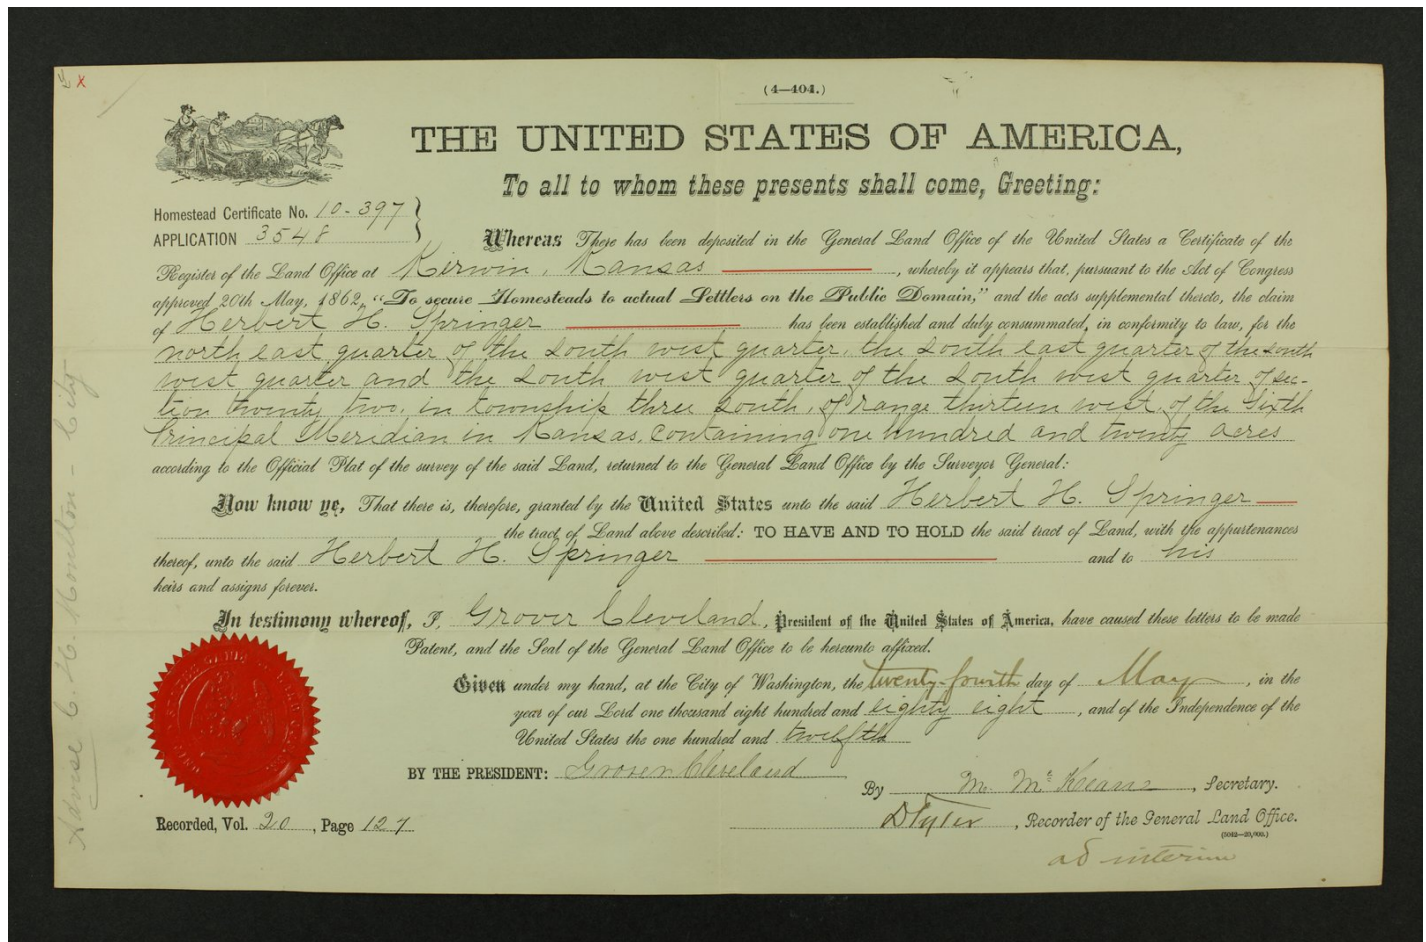 (4—404.)
THE UNITED STATES OF AMERICA,
To all to whom these presents shall come, Greeting:
Homestead Certificate No. 10-397
APPLICATION 3548
Whereas There has been deposited in the General Land Office of the United States a Certificate of the
Register of the Land Office at Kirwin, Kansas, whereby it appears that, pursuant to the Act of Congress
approved 20th May, 1862, "To secure Homesteads to actual Settlers on the Public Domain," and the acts supplemental thereto, the claim
of Herbert H. Springer has been established and duly consummated, in conformity to law, for the
north east quarter of the south west quarter, the south east quarter of the south
west quarter and the south west quarter of the south west quarter of sec-
tion twenty two, in township three south, of range thirteen west, of the Sixth
Principal Meridian in Kansas, containing one hundred and twenty acres
according to the Official Plat of the survey of the said Land, returned to the General Land Office by the Surveyor General:
Now know ye, That there is, therefore, granted by the United States unto the said Herbert H. Springer
the tract of Land above described: TO HAVE AND TO HOLD the said tract of Land, with the appurtenances
thereof, unto the said Herbert H. Springer and to his
heirs and assigns forever.
In testimony whereof, I, Grover Cleveland, President of the United States of America, have caused these letters to be made
Patent, and the Seal of the General Land Office to be hereunto affixed.
Given under my hand, at the City of Washington, the twenty-fourth day of May, in the
year of our Lord one thousand eight hundred and eighty eight, and of the Independence of the
United States the one hundred and twelfth
BY THE PRESIDENT: Grover Cleveland
By M. McKean, Secretary.
Recorded, Vol. 20, Page 127
, Recorder of the General Land Office.
ad interim
Advise C. H. Moulton - City